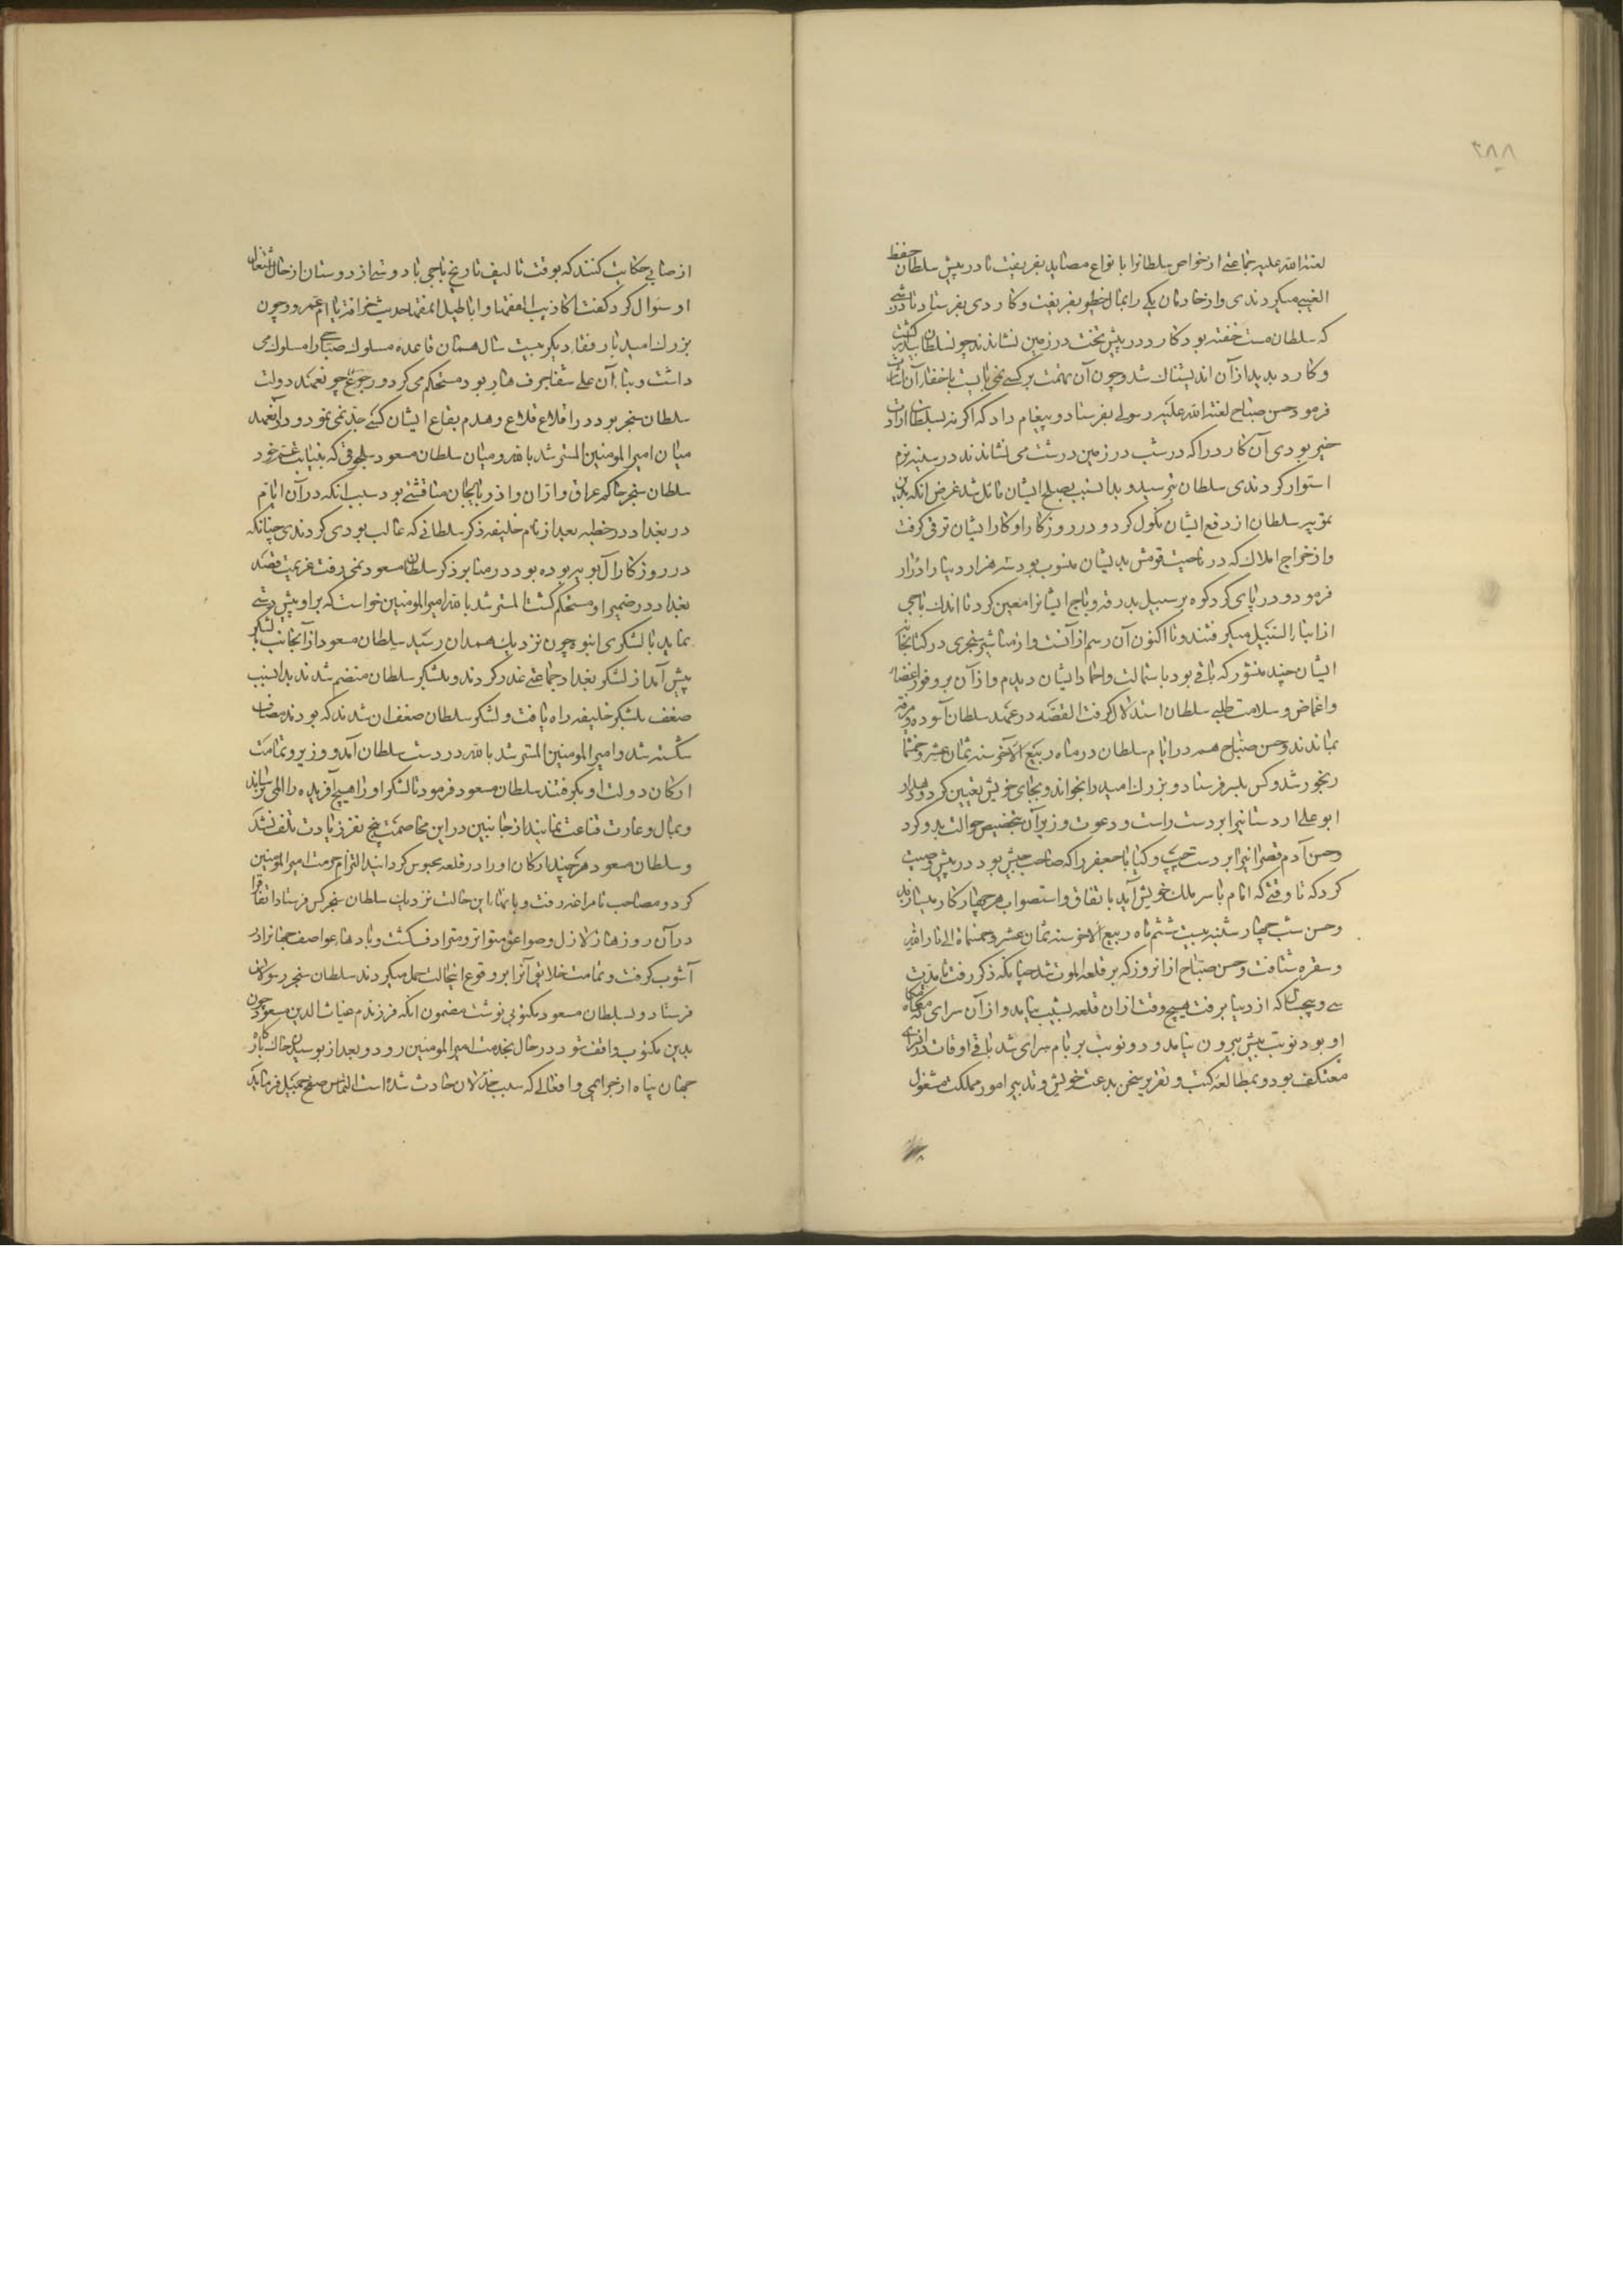 ۲۸۸
لعنه الله علیه جماعتی از خواص سلطانرا بانواع مصاید بفریفت تا در پیش سلطان حفظ
الغیبی میکردندی و از خادمان یکی را بمال خطیر بفریفت و کاردی بفرستاد تا در شبی
که سلطان مست خفته بود کارد در پیش تخت در زمین نشاندند چون سلطان بیدار گشت
و کارد بدید از آن اندیشناک شد و چون آن تهمت بر کسی نمی بایست باخفاء آن اشارت
فرمود حسن صباح لعنه الله علیه رسولی بفرستاد و پیغام داد که اگر نه بسلطان ارادت
خیر بودی آن کارد را که در شب در زمین درشت می نشاندند در سینه نرم
استوار کردندی سلطان بترسید و بدان سبب بصلح ایشان مائل شد غرض آنکه بدین
تمویه سلطان از دفع ایشان نکول کرد و در روزگار او کار ایشان ترقی گرفت
و از خراج املاک که در ناحیت قومش بدیشان منسوب بود سه هزار دینار ادرار
فرمود و در پای گردکوه بر سبیل بدرقه و باج ایشانرا معین کرد تا اندک باجی
از ابناء السبیل میگرفتند و تا اکنون آن رسم از آنست و از مناشیر سنجری در کتابخانه
ایشان چند منشور که باقی بود باستمالت و احماد ایشان دیدم و از آن بر وفور اغضاء
و اغماض و سلامت طلبی سلطان استدلال گرفت القصه در عهد سلطان آسوده و مرفه
بماندند و حسن صباح هم در ایام سلطان در ماه ربیع الآخر سنه ثمان عشر و خمسمائه
رنجور شد و کس بلمسر فرستاد و بزرگ امید را بخواند و بجای خویش تعیین کرد و دهدار
ابو علی اردستانی را بر دست راست و دعوت و زیران بتخصیص حوالت بدو کرد
و حسن آدم قصرانی را بر دست چپ و کیا با جعفر را که صاحب جیش بود در پیش وصیت
کرد که تا وقتی که امام با سر ملک خویش آید باتفاق و استصواب هر چهار کار میسازند
و حسن شب چهارشنبه بیست ششم ماه ربیع الاخر سنه ثمان عشر و خمسمائه الی نار الله
و سقره شتافت و حسن صباح از آن روز که بر قلعه الموت شد چنانکه ذکر رفت تا مدت
سی و پنج سال که از دنیا برفت هیچ وقت از آن قلعه بشیب نیامد و از آن سرای که مقامگاه
او بود دو نوبت بیش بیرون نیامد و دو نوبت بر بام سرای شد باقی اوقات در آن سرای
معتکف بود و بمطالعه کتب و تقریر سخن بدعت خویش و تدبیر امور مملکت مشغول
از صابی حکایت کنند که بوقت تالیف تاریخ باجی با دوستی از دوستان از حال اشتغال
او سؤال کرد گفت اکاذیب الفقها و اباطیل انمقها حدیث خرافة یا ام عمرو و چون
بزرگ امید با رفقاء دیگر بیست سال همان قاعده مسلوک صباحی را مسلوک می
داشت و بناء آن علی شفا جرف هار بود مستحکم می کرد و رجوع چو بعهد دولت
سلطان سنجر بود در اقلاع قلاع و هدم بقاع ایشان کسی جدی نمی نمود و در آن عهد
میان امیر المومنین المسترشد بالله و میان سلطان مسعود سلجوقی که بنیابت عم خود
سلطان سنجر حاکم عراق و اران و اذربایجان مناقشتی بود سبب آنکه در آن ایام
در بغداد در خطبه بعد از نام خلیفه ذکر سلطانی که غالب بودی کردندی چنانکه
در روزگار آل بویه بوده بود در منابر ذکر سلطان مسعود نمی رفت عزیمت قصد
بغداد در ضمیر او مستحکم گشت المسترشد بالله امیر المومنین خواست که بر او پیش دستی
نماید با لشکری انبوه چون نزدیک همدان رسید سلطان مسعود از آنجانب با لشکر
پیش آمد از لشکر بغداد جماعتی غدر کردند و بلشکر سلطان منضم شدند بدان سبب
ضعف بلشکر خلیفه راه یافت و لشکر سلطان ضعف آن شدند که بودند مصاف
شکسته شد و امیر المومنین المسترشد بالله در دست سلطان آمد و وزیر و تمامت
ارکان دولت او بگرفتند سلطان مسعود فرمود تا لشکر او را هیچ آفریده را المی نرسانند
و بمال و غارت قناعت نمایند از جانبین در این مخاصمت پنج نفر زیادت تلف نشد
و سلطان مسعود هر چند ارکان او را در قلعه محبوس گردانید التزام حرمت امیر المومنین
کرد و مصاحب تا مراغه رفت و بانهاء این حالت نزدیک سلطان سنجر کس فرستاد اتفاقا
در آن روزها زلازل و صواعق متواتر و مترادف گشت و بادهاء عواصف جهانرا در
آشوب گرفت و تمامت خلایق آنرا بر وقوع اینحالت حمل میکردند سلطان سنجر رسولان
فرستاد و بسلطان مسعود مکتوبی نوشت مضمون آنکه فرزندم غیاث الدین مسعود چون
بدین مکتوب واقف شود در حال بخدمت امیر المومنین رود و بعد از بوسیدن خاک بارگاه
جهان پناه از جرایمی و افعالی که سبب خذلان حادث شده است التماس صفح جمیل فرماید